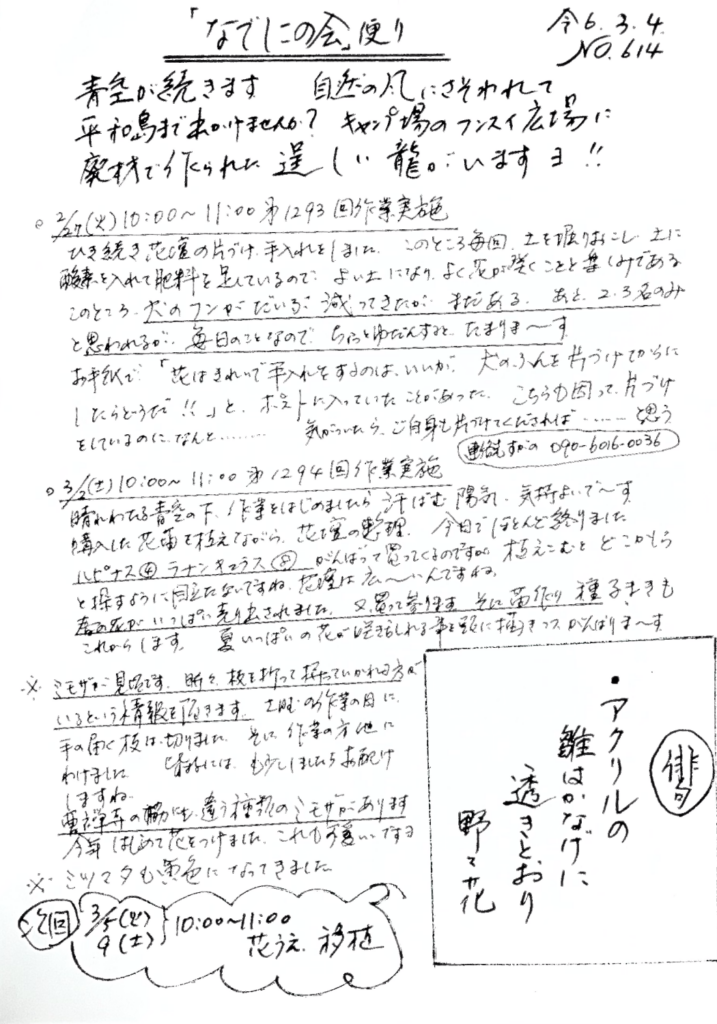 「なでしこの会」便り
令6.3.4.
NO.614
青空が続きます 自然の風にさそわれて
平和島まで出かけませんか? キャンプ場のフンスイ広場に
廃材で作られた逞しい龍がいますヨ!!
○ 2/27(火)10:00〜11:00 第1293回作業実施
ひき続き花壇の片づけ、手入れをしました。このところ毎回、土を掘りおこし、土に
酸素を入れて肥料を足しているので、よい土になり、よく花が咲くことと楽しみである
このところ、犬のフンがだいぶ減ってきたが、まだある。あと、2.3名のみ
と思われるが、毎日のことなので、ちょっとゆだんすると、たまりま〜す
お手紙で、「花はきれいで手入れをするのは、いいが、犬のふんを片づけてからに
したらどうだ!!」と、ポストに入っていたことがあった。こちらも困って、片づけ
をしているのに、なんと……… 気がついたら、ご自身も片づけてくだされば……… と思う
すがの 090-6016-0036
○ 3/2(土)10:00〜11:00 第1294回作業実施
晴れわたる青空の下、作業をはじめましたら汗ばむ陽気、気持よいで〜す
購入した花苗を植えながら、花壇の整理、今日でほとんど終りました
ルピナス④ ラナンキュラス⑧ がんばって買ってくるのですが、植えこむと どこかしら
と探すように目立たないですね、花壇は広〜いんですね。
春の花がいっぱい売り出されました。又買って参ります そに苗作り 種子まきも
これからします。夏いっぱいの花が咲きほこれる事を頭に描きつつ がんばりま〜す
※ ミモザが見頃です。時々、枝を折って採っていかれる方が
いるという情報を頂きます。土曜の作業の日に、
手の届く枝は、切りました。そに、作業の方他に
わけました もう少ししましたらお配け
しますね
の脇にも、違う種類のミモザがあります
今年はじめて花をつけました、これも可愛いですヨ
※ ミツマタも黄色になってきました
次回 3/5(火) 9(土) 10:00〜11:00
花うえ、移植
俳句
・アクリルの
雛はかなげに
透きとおり
野々花